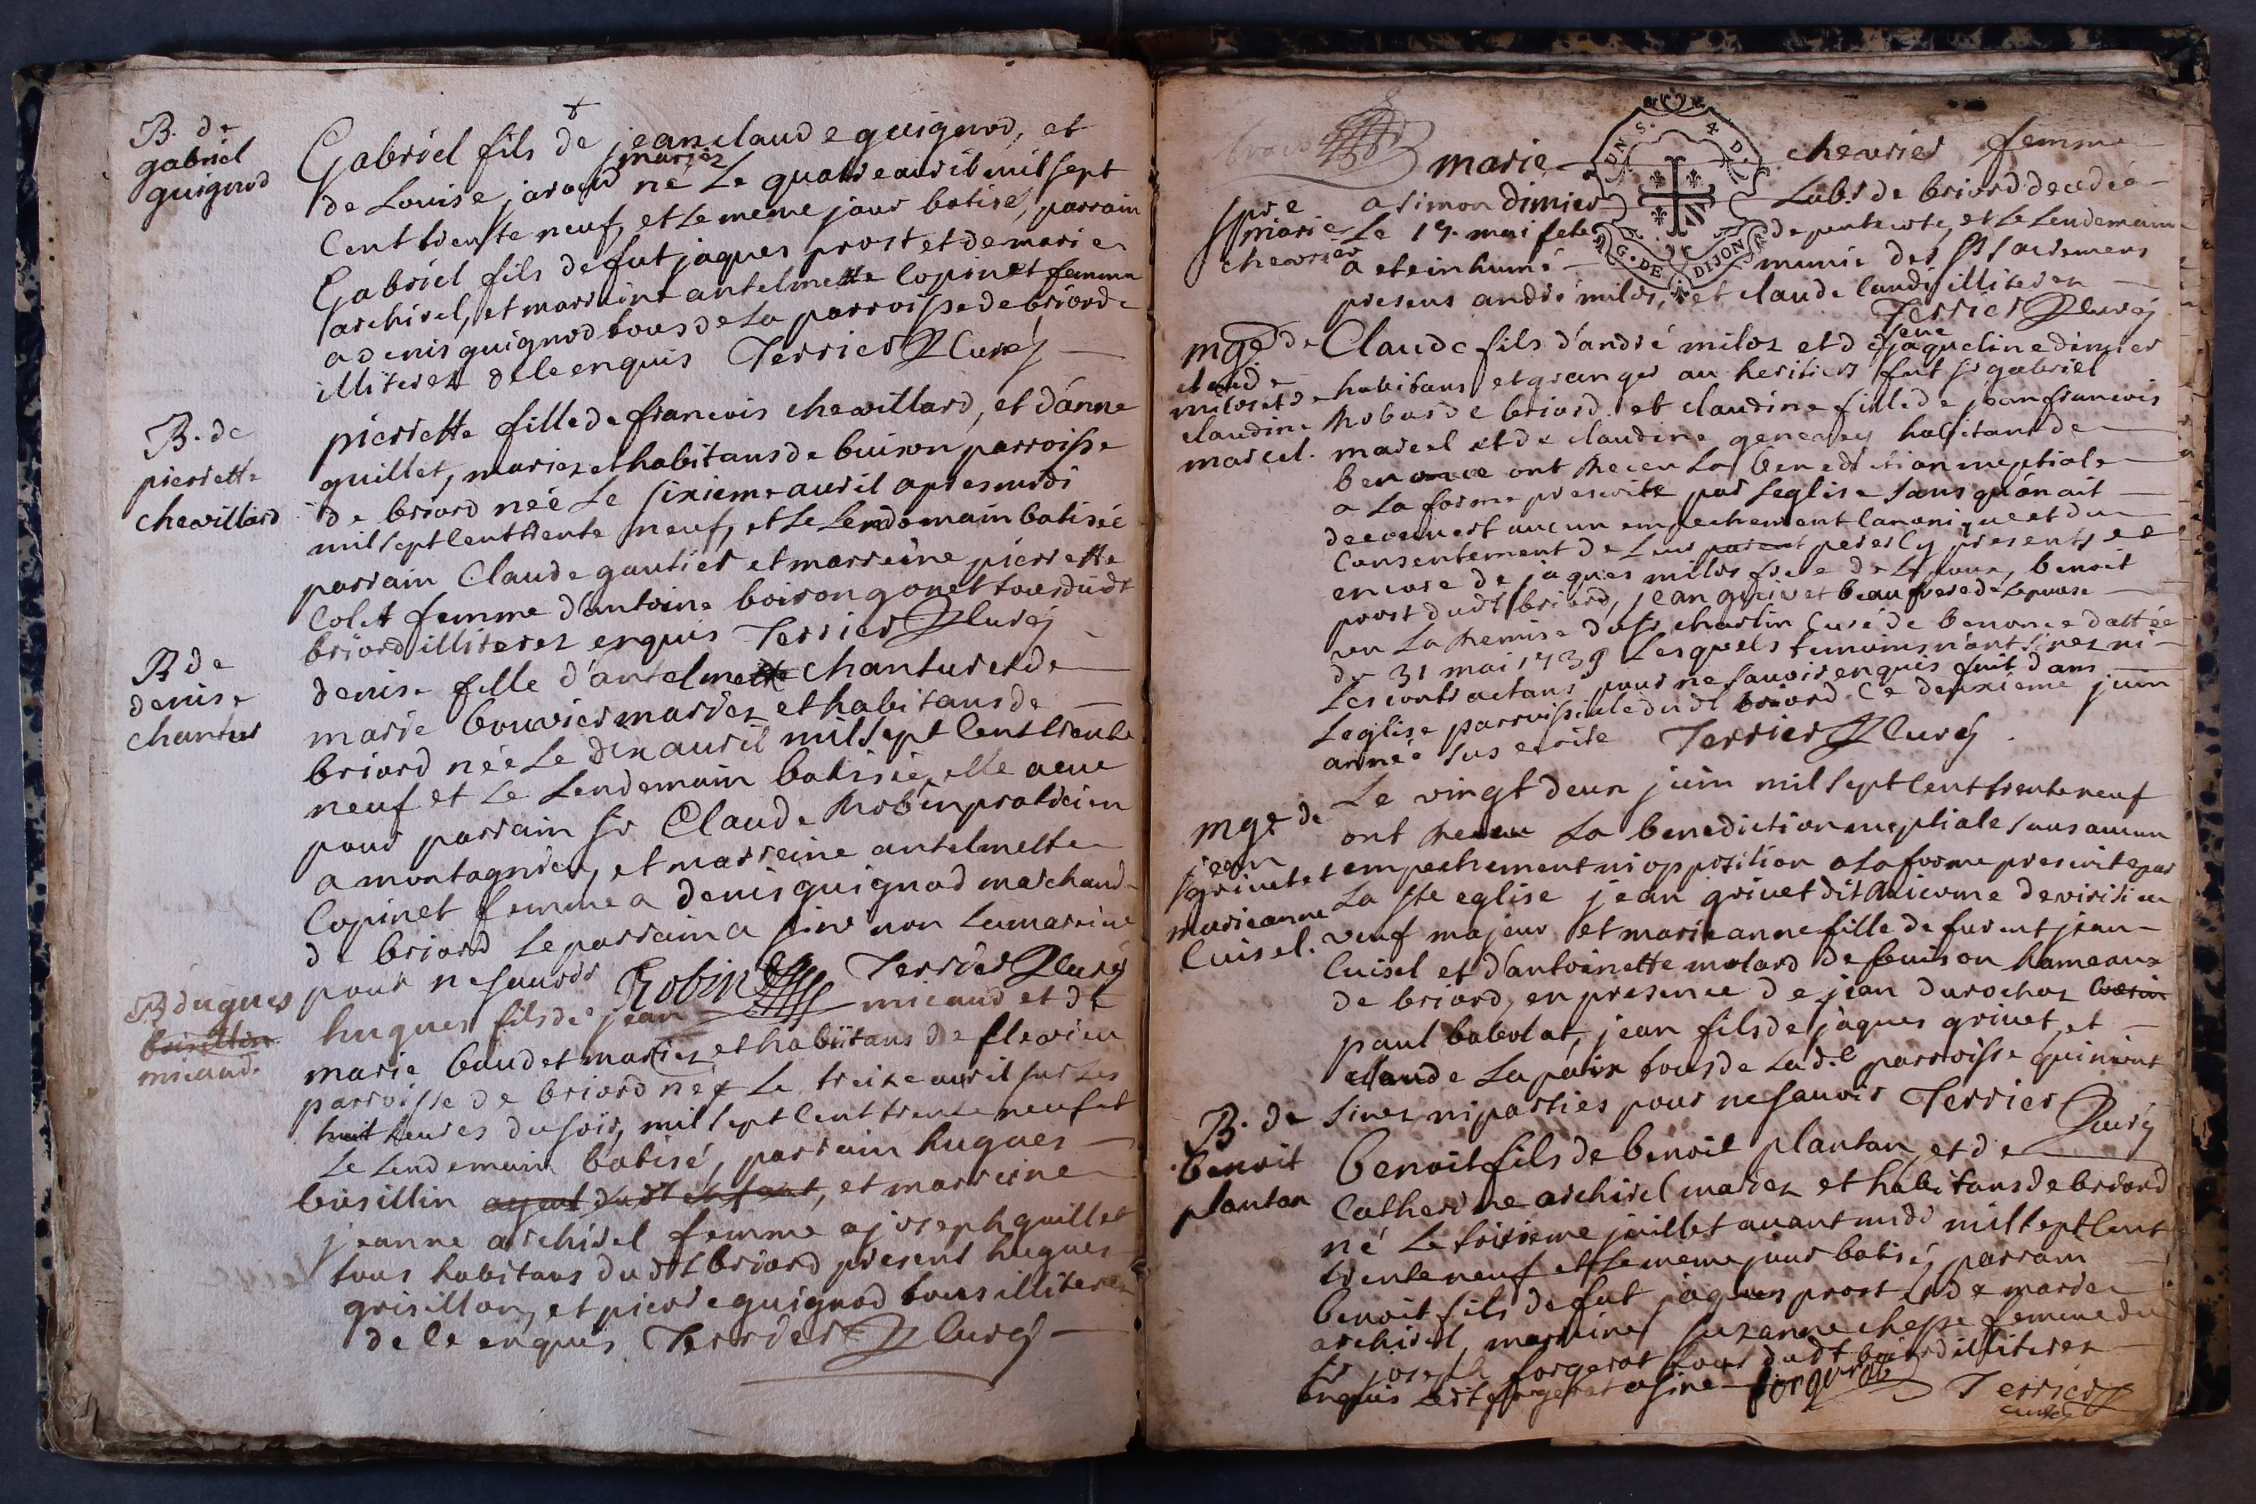 B. de
gabriel
guignod
Gabriel fils de jean claude guignod, et
mariez
de Louise jaraud né Le quatre auril mil sept
Cent trente neuf, et Le meme jour batisé, parrain
Gabriel fils de fut jaques prost et de marie
archirel, et marreine antelmette Copinet femme
a denis guignod tous de La parroisse de briord
illiterez de le enquis Terrier Curé
B. de
pierrette
chevillard
pierrette fille de francois chevillard, et d'anne
guillet, mariez et habitans de buison parroisse
de briord neé Le sixieme auril apres midi
mil sept cent trente neuf, et Le Lendemain batiseé
parrain Claude gautier et marreine pierrette
Colet femme d'antoine boisongonet tous dudt
briord illiterez enquis Terrier Curé
B de
denise
chantur
denise fille d'antelmette chantur et de
marie bouvier mariez et habitans de
briord neé Le dix auril mil sept cent trente
neuf et Le Lendemain batiseé, elle a eue
pour parrain sr Claude Robin praticien
a montagnieu, et marreine antelmette
Copinet femme a denis guignod marchand
de briord Le parrain a siné non La mareine
pour ne sauoir Robin Terrier curé
B d'ugues
brisillin
micaud.
hugues fils de jean micaud et de
marie baudet mariez et habitans de flevieu
parroisse de briord né Le treize auril sur Les
huit heures du soir, mil sept cent trente neuf et
Le Lendemain batisé, parrain hugues
brisillin ayeul dudt enfant, et marreine
jeanne archirel femme a joseph guillet
tous habitans dudt briord present hugues
grisillon, et pierre guignod tous illiterez
de le enquis Terrier Curé
UN S. 4 D.
G. DE DIJON
marie chevrier femme
Spre
marie
chevrier
a simon dimier Labr de briord decedeé
Le 17. mai fete de pentecote, et Le Lendemain
a eté inhumé munie des Sts sacremens
presens andré milos, et claude landi illiterez
Terrier Curé
mge de
claude
milos et de
claudine
marcel.
Claude fils d'andré milos et de feue jaqueline dimier
habitans et granger au heritiers fut sr gabriel
Robas de briord et claudine fille de jean francois
marcel et de claudine generey habitans de
benonce ont Receu La benediction nuptiale
a La forme prescrite par Leglise sans qu'on ait
decouvert aucun empechement Canonique et du
Consentement de Leur parent peres Cy presents et
encore de jaques milos frere de Lepoux, benoit
prost dudt briord, jean grivet beau frere de Lepouse
vu La Remise du sr charlin Curé de benonce dattée
du 31 mai 1739 Lesquels temoins n'ont sinez ni
Les contractans pour ne sauoir enquis fait dans
Leglise parroissiale dudt briord Ce deuxieme juin
année sus ecrite Terrier Curé
mge de
jean
grivet et
marieanne
Cuisel.
Le vingt deux juin mil sept cent trente neuf
ont Receu La benediction nuptiale sans aucun
empechement ni opposition a La forme prescrite par
La Ste eglise jean grivet dit de virisieu
veuf majeur et marie anne fille de furent jean
Cuisel et d'antoinette molard de buison hameaux
de briord, en presence de jean durochaz
paul babolat, jean fils de jaques grivet, et
claude Lapatin tous de Lad.e parroisse qui n'ont
sinez ni parties pour ne sauoir Terrier
Curé
B. de
benoit
plantan
benoit fils de benoit plantan, et de
Catherine archirel mariez et habitans de briord
né Le troisieme juillet auant midi mil sept cent
trente neuf et Le meme jour batisé, parrain
benoit fils de fut jaques prost et de marie
archirel, marreine suzanne chesse femme du
sr joseph forgerot tous dudt briord illiterez
enquis Ledt forgerot a siné forgerot Terrier
curé